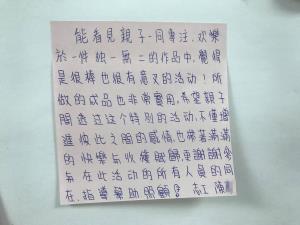 能看見親子一同專注、歡樂
於一件独一無二的作品中,覺得
是很棒也很有意义的活動!所
做的成品也非常實用,希望親子
間透过这个特別的活動,不僅增
進彼此之間的感情,也帶著滿滿
的快樂与收穫賦歸,更謝謝參
与在此活動的所有人員的同
在、指導幫助照顧! 志工 陳